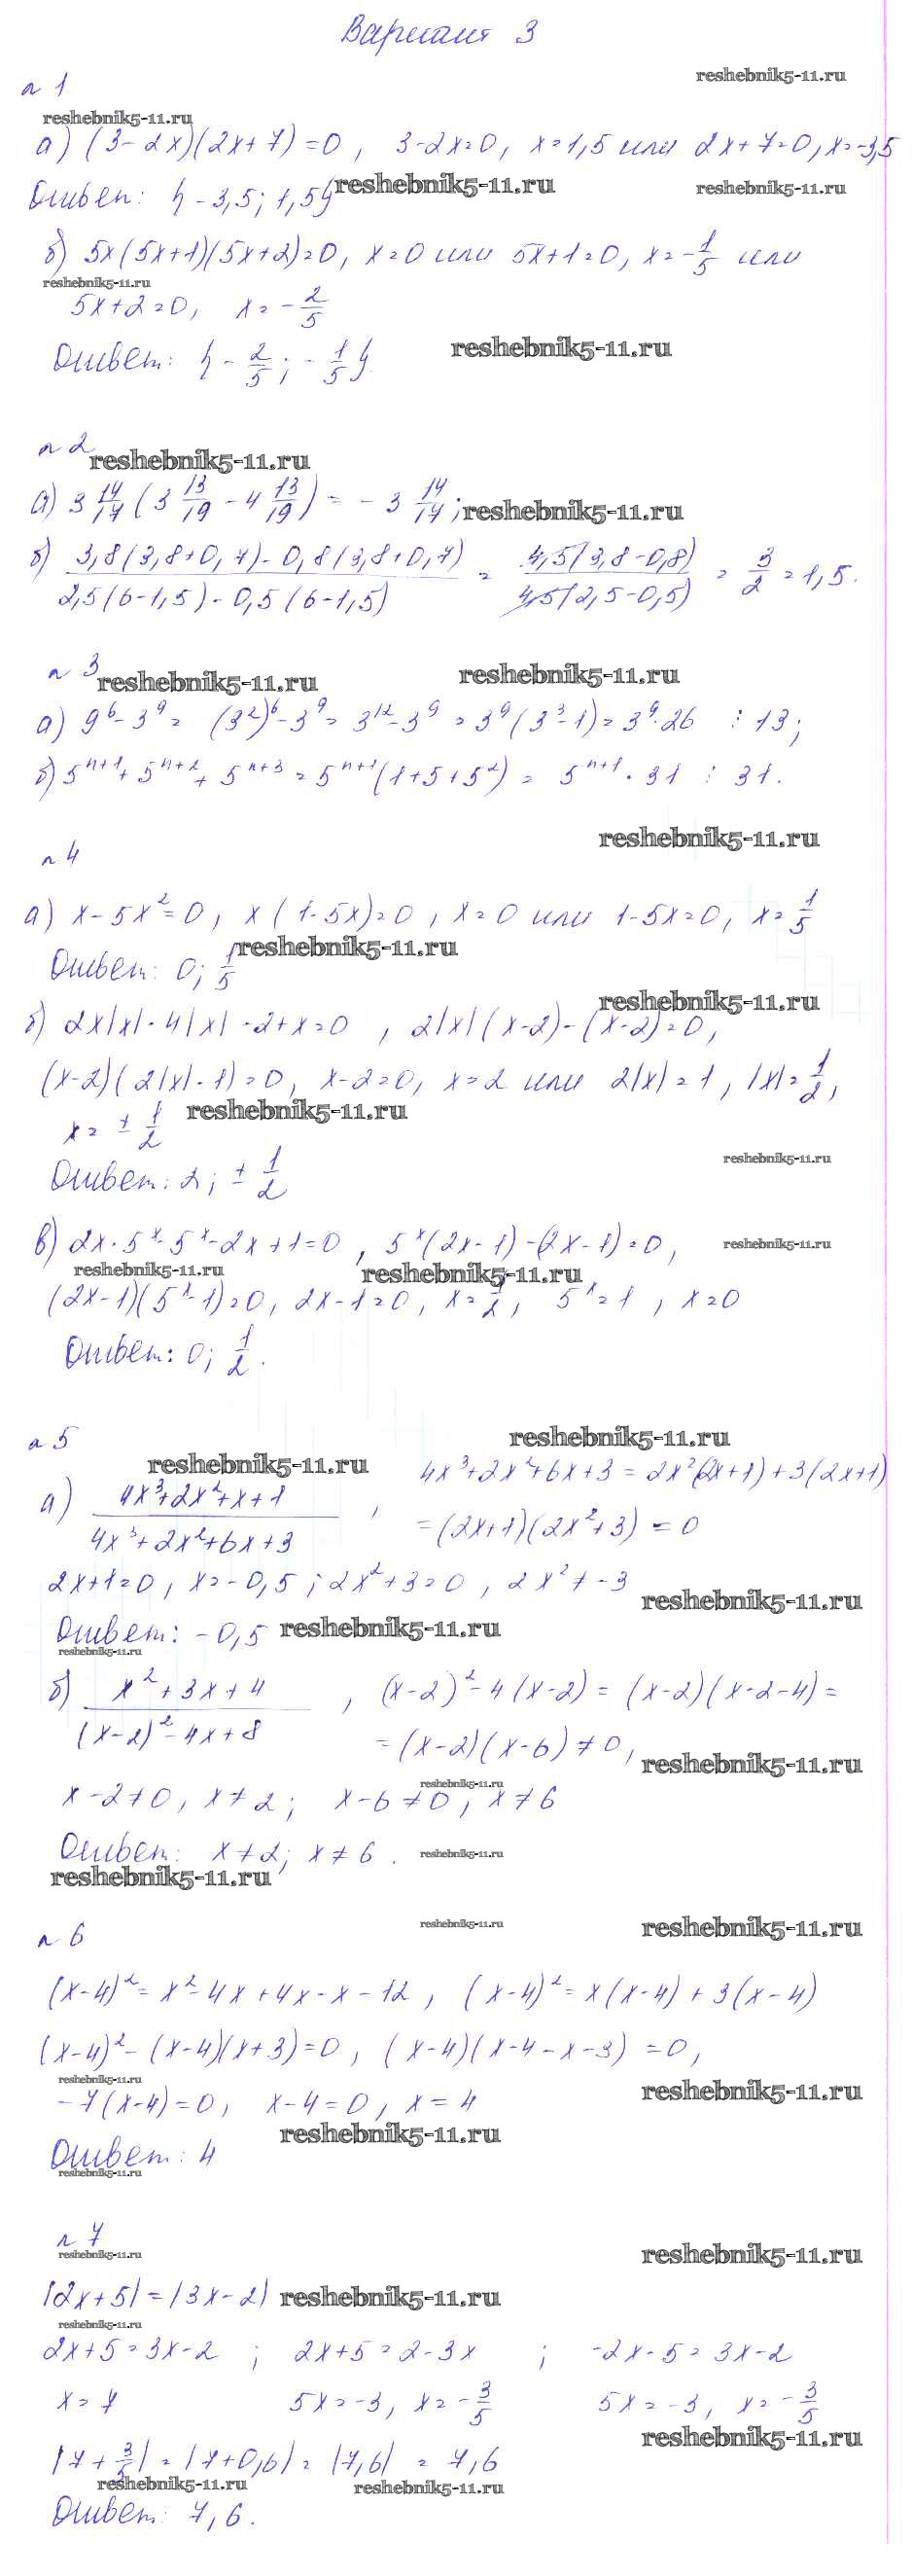 Вариант 3
reshebnik5-11.ru
№ 1
reshebnik5-11.ru
а) (3-2x)(2x+7)=0, 3-2x=0, x=1,5 или 2x+7=0, x=-3,5
Ответ: {-3,5; 1,5} reshebnik5-11.ru reshebnik5-11.ru
б) 5x(5x+1)(5x+2)=0, x=0 или 5x+1=0, x=-1/5 или
reshebnik5-11.ru
5x+2=0, x=-2/5
Ответ: {-2/5; -1/5} reshebnik5-11.ru
№ 2
reshebnik5-11.ru
а) 3 14/17 (3 13/19 - 4 13/19) = -3 14/17; reshebnik5-11.ru
б) (3,8(3,8+0,7)-0,8(3,8+0,7))/(2,5(6-1,5)-0,5(6-1,5)) = (4,5(3,8-0,8))/(4,5(2,5-0,5)) = 3/2 = 1,5.
№ 3
reshebnik5-11.ru reshebnik5-11.ru
а) 9⁶-3⁹= (3²)⁶-3⁹=3¹²-3⁹=3⁹(3³-1)=3⁹·26 ⋮ 13;
б) 5ⁿ⁺¹+5ⁿ⁺²+5ⁿ⁺³=5ⁿ⁺¹(1+5+5²)= 5ⁿ⁺¹·31 ⋮ 31.
reshebnik5-11.ru
№ 4
а) x-5x²=0, x(1-5x)=0, x=0 или 1-5x=0, x=1/5
Ответ: 0; 1/5 reshebnik5-11.ru
reshebnik5-11.ru
б) 2x|x|-4|x|-2+x=0, 2|x|(x-2)-(x-2)=0,
(x-2)(2|x|-1)=0, x-2=0, x=2 или 2|x|=1, |x|=1/2,
x=±1/2 reshebnik5-11.ru
reshebnik5-11.ru
Ответ: 2; ±1/2
в) 2x·5ˣ-5ˣ-2x+1=0, 5ˣ(2x-1)-(2x-1)=0, reshebnik5-11.ru
reshebnik5-11.ru reshebnik5-11.ru
(2x-1)(5ˣ-1)=0, 2x-1=0, x=1/2, 5ˣ=1, x=0
Ответ: 0; 1/2.
№ 5
reshebnik5-11.ru reshebnik5-11.ru
а) (4x³+2x²+x+1)/(4x³+2x²+6x+3), 4x³+2x²+6x+3=2x²(2x+1)+3(2x+1)
=(2x+1)(2x²+3)=0
2x+1=0, x=-0,5; 2x²+3=0, 2x²≠-3
reshebnik5-11.ru
Ответ: -0,5 reshebnik5-11.ru
reshebnik5-11.ru
б) (x²+3x+4)/((x-2)²-4x+8), (x-2)²-4(x-2)=(x-2)(x-2-4)=
=(x-2)(x-6)≠0,
reshebnik5-11.ru
reshebnik5-11.ru
x-2≠0, x≠2; x-6≠0, x≠6
Ответ: x≠2; x≠6. reshebnik5-11.ru
reshebnik5-11.ru
reshebnik5-11.ru reshebnik5-11.ru
№ 6
(x-4)²=x²-4x+4x-x-12, (x-4)²=x(x-4)+3(x-4)
(x-4)²-(x-4)(x+3)=0, (x-4)(x-4-x-3)=0,
reshebnik5-11.ru reshebnik5-11.ru
-7(x-4)=0, x-4=0, x=4
reshebnik5-11.ru
Ответ: 4
reshebnik5-11.ru
№ 7
reshebnik5-11.ru reshebnik5-11.ru
|2x+5|=|3x-2| reshebnik5-11.ru
reshebnik5-11.ru
2x+5=3x-2; 2x+5=2-3x; -2x-5=3x-2
x=7 5x=-3, x=-3/5 5x=-3, x=-3/5
reshebnik5-11.ru
|7+3/5|=|7+0,6|=|7,6|=7,6
reshebnik5-11.ru reshebnik5-11.ru
Ответ: 7,6.